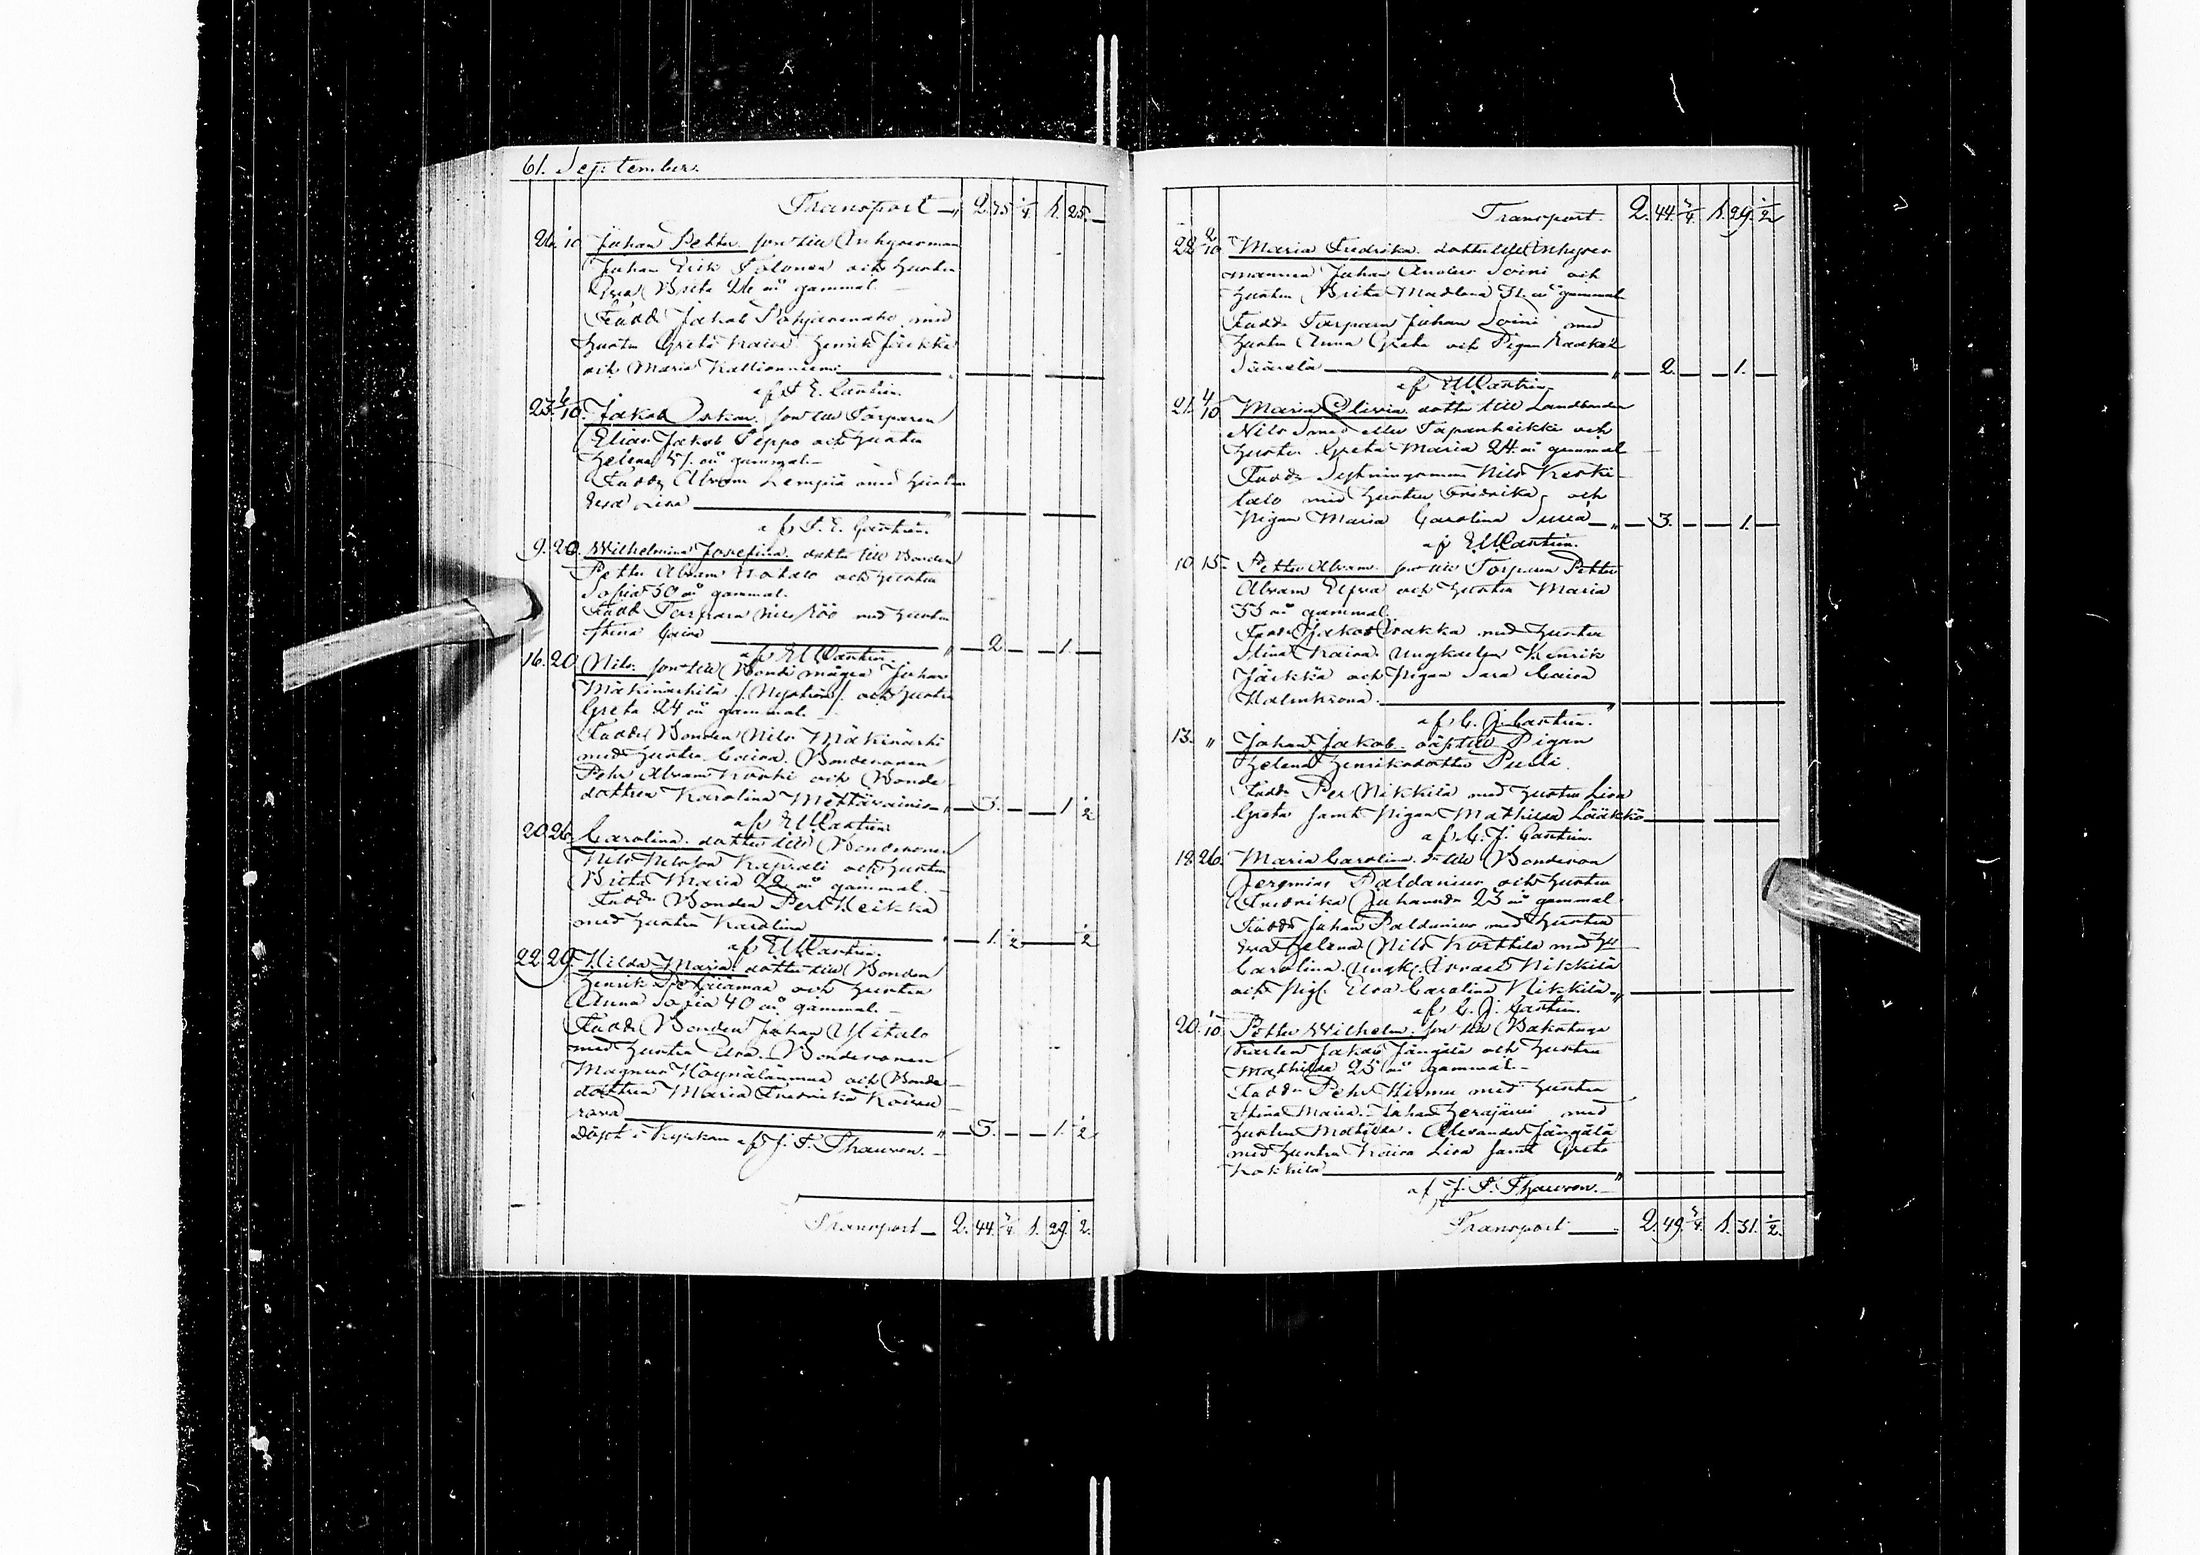 61. September.
Transport 2. 45 1/4 1. 25.
26. 1/10 Johan Petter son till Inhysesman
Johan Erik Palonen och hustru
Brita 26 år gammal.
Fadd. Jakob Pohjanen med
hustru Greta Kaisa. Henrik Jäikkä
och Maria Kallioniemi
af P. E. Castrén.
23. 6/10. Jakob Oskar. son till Torparen
Elias Jakob Seppo och hustru
Helena 41 år gammal.
Fadd. Abram Lempiä med hustru
Eva Lisa
af P. E. Castrén.
9. 20. Wilhelmina Josefina. dotter till Bonden
Petter Abram och hustru
Sofia 30 år gammal.
Fadd. Torparn Nils Röö med hustru
Stina Caisa 2. 1.
af E W Castrén.
16. 20 Nils. son till Bonde mågen Johan
Mäkinärhilä /: Nyström :/ och hustru
Greta 24 år gammal.
Fadd. Bonden Nils Mäkinärhi
med hustru Caisa. Bondesonen
Pehr Abram Koski och Bonde
dottren Karolina Mettävainio 3. 1. 1/2
af E W Castrén.
20. 26. Carolina. dotter till Bondesonen
Nils Nilsson Kaprali och hustru
Brita Maria 22 år gammal.
Fadd. Bonden Per Heikka
med hustru Karolina 1. 1/2 1/2
af E W Castrén.
22. 29. Hilda Maria. dotter till Bonden
Henrik och hustru
Anna Sofia 40 år gammal.
Fadd. Bonden Johan Ylitalo
med hustru Elsa. Bondesonen
Magnus Höynälänmaa och Bonde
dottren Maria Fredrika Koivu
rova 3. 1. 1/2
Döpt i Kyrkan af J. F. Thauvón.
Transport 2. 44. 3/4 1. 29. 1/2.
Transport. 2. 44. 3/4 1. 29. 1/2
22 2/10 Maria Fredrika. dotter till Inhyses
mannen Johan Anders Soini och
hustru Brita Madlena 31 år gammal
Fadd. Torparn Johan Soini med
hustru Anna Greta och Pigan Raakel
Säärelä 2. 1.
af E W Castrén.
21. 4/10 Maria Olivia. dotter till Landbonden
Nils Smed eller Tapanheikki och
hustru Greta Maria 24 år gammal
Fadd. Sytningsman Nils Keski-
talo med hustru Fredrika, och
pigan Maria Carolina 3. 1.
af E W Castrén.
10. 15. Petter Abram. son till Torparen Petter
Abram och hustru Maria
33 år gammal.
Fadd. Jakob Irakka med hustru
Stina Kaisa. Ungkarlen Henrik
Jäikkä och pigan Sara Caisa
Malmkrona.
af C. J. Castrén.
13. " Johan Jakob. till Pigan
Helena Henriksdotter Pulli.
Fadd. Per Nikkilä med hustru Lisa
Greta samt pigan Mathilda Lääkkö
af C. J. Castrén.
19. 26. Maria Carolina. d:r till Bondeson
Jeremias Paldanius och hustru
Fredrika Johanna 23 år gammal
Fadd. Johan Paldanius med hustru
Eva Helena. Nils Korkkila med hu
Carolina. Ungk. Israel Nikkilä
och pig. Elsa Carolina Nikkilä
af C. J. Castrén.
20. 1/10 Petter Wilhelm. son till Bakstuga
karlen Jakob Jängälä och hustru
Mathilda 25 år gammal.
Fadd. Pehr Hirmu med hustru
Stina Maria. Johan Herajärvi med
hustru Matilda. Alexander Jängälä
med hustru Kaisa Lisa samt Greta
Kokkila
af J. F. Thauvón.
Transport 2. 49. 3/4. 1. 31. 1/2.